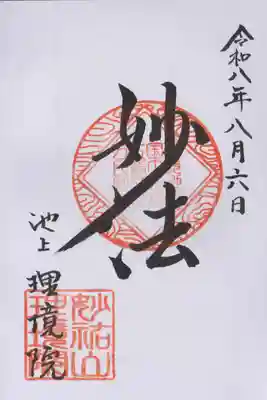 令和八年八月六日
妙法
池上
理境院
妙祐山